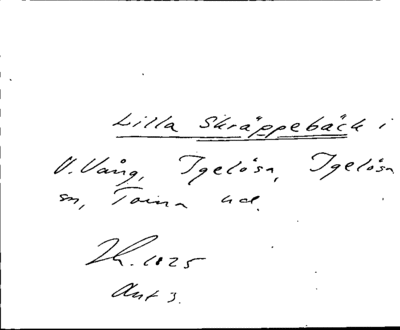 Lilla Skräppebäck i
V. Vång, Igelösa, Igelösa
sn, Torna hd.
1825
Akt 3.